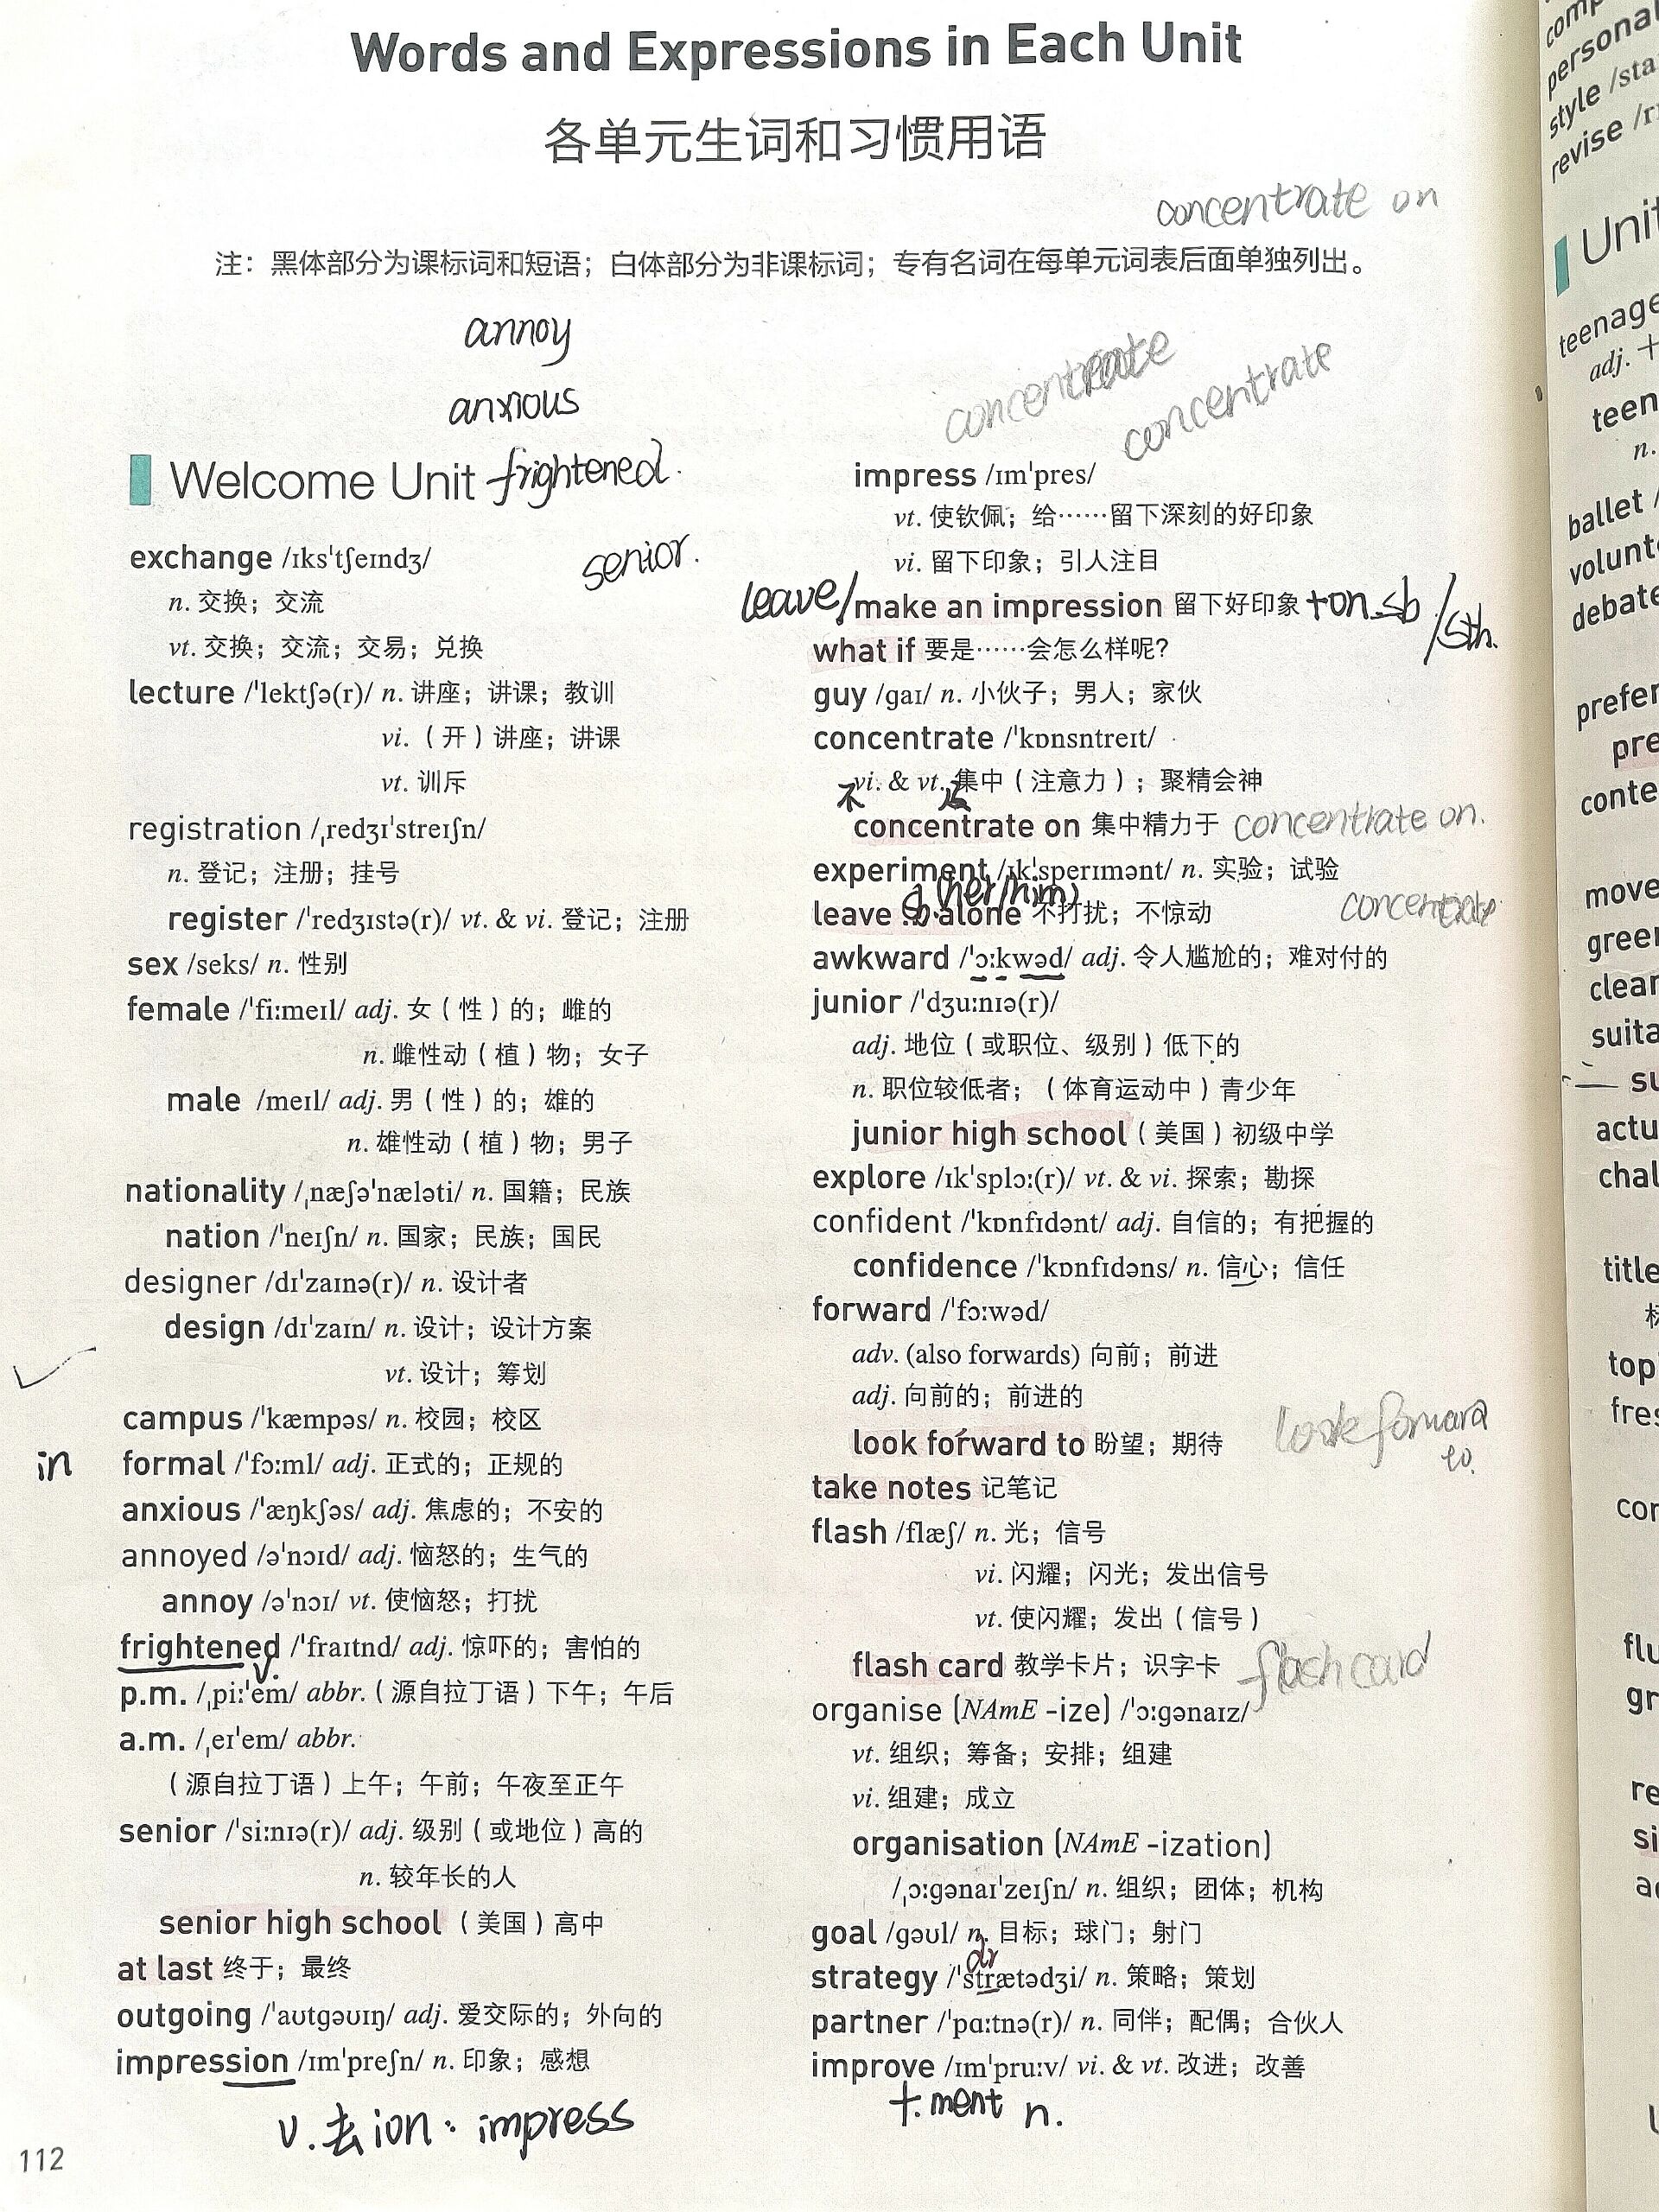 Words and Expressions in Each Unit
各单元生词和习惯用语
concentrate on
注：黑体部分为课标词和短语；白体部分为非课标词；专有名词在每单元词表后面单独列出。
annoy
anxious
Welcome Unit frightened.
senior.
exchange /ɪksˈtʃeɪndʒ/
n. 交换；交流
vt. 交换；交流；交易；兑换
lecture /ˈlektʃə(r)/ n. 讲座；讲课；教训
vi.（开）讲座；讲课
vt. 训斥
registration /ˌredʒɪˈstreɪʃn/
n. 登记；注册；挂号
register /ˈredʒɪstə(r)/ vt. & vi. 登记；注册
sex /seks/ n. 性别
female /ˈfiːmeɪl/ adj. 女（性）的；雌的
n. 雌性动（植）物；女子
male /meɪl/ adj. 男（性）的；雄的
n. 雄性动（植）物；男子
nationality /ˌnæʃəˈnæləti/ n. 国籍；民族
nation /ˈneɪʃn/ n. 国家；民族；国民
designer /dɪˈzaɪnə(r)/ n. 设计者
design /dɪˈzaɪn/ n. 设计；设计方案
vt. 设计；筹划
campus /ˈkæmpəs/ n. 校园；校区
in formal /ˈfɔːml/ adj. 正式的；正规的
anxious /ˈæŋkʃəs/ adj. 焦虑的；不安的
annoyed /əˈnɔɪd/ adj. 恼怒的；生气的
annoy /əˈnɔɪ/ vt. 使恼怒；打扰
frightened /ˈfraɪtnd/ adj. 惊吓的；害怕的
v.
p.m. /ˌpiːˈem/ abbr.（源自拉丁语）下午；午后
a.m. /ˌeɪˈem/ abbr.
（源自拉丁语）上午；午前；午夜至正午
senior /ˈsiːnɪə(r)/ adj. 级别（或地位）高的
n. 较年长的人
senior high school （美国）高中
at last 终于；最终
outgoing /ˈaʊtgəʊɪŋ/ adj. 爱交际的；外向的
impression /ɪmˈpreʃn/ n. 印象；感想
v.去ion: impress
112
concentrate
concentrate
impress /ɪmˈpres/
vt. 使钦佩；给……留下深刻的好印象
vi. 留下印象；引人注目
leave/make an impression 留下好印象+on sb/sth.
what if 要是……会怎么样呢？
guy /gaɪ/ n. 小伙子；男人；家伙
concentrate /ˈkɒnsntreɪt/
vi. & vt. 集中（注意力）；聚精会神
不
concentrate on 集中精力于 concentrate on.
experiment /ɪkˈsperɪmənt/ n. 实验；试验
(her/him)
leave sb alone 不打扰；不惊动
concentrate
awkward /ˈɔːkwəd/ adj. 令人尴尬的；难对付的
junior /ˈdʒuːnɪə(r)/
adj. 地位（或职位、级别）低下的
n. 职位较低者；（体育运动中）青少年
junior high school（美国）初级中学
explore /ɪkˈsplɔː(r)/ vt. & vi. 探索；勘探
confident /ˈkɒnfɪdənt/ adj. 自信的；有把握的
confidence /ˈkɒnfɪdəns/ n. 信心；信任
forward /ˈfɔːwəd/
adv. (also forwards) 向前；前进
adj. 向前的；前进的
look forward to 盼望；期待 look forward to.
take notes 记笔记
flash /flæʃ/ n. 光；信号
vi. 闪耀；闪光；发出信号
vt. 使闪耀；发出（信号）
flash card 教学卡片；识字卡 flash card
organise (NAmE -ize) /ˈɔːgənaɪz/
vt. 组织；筹备；安排；组建
vi. 组建；成立
organisation (NAmE -ization)
/ˌɔːgənaɪˈzeɪʃn/ n. 组织；团体；机构
goal /gəʊl/ n. 目标；球门；射门
dr
strategy /ˈstrætədʒi/ n. 策略；策划
partner /ˈpɑːtnə(r)/ n. 同伴；配偶；合伙人
improve /ɪmˈpruːv/ vi. & vt. 改进；改善
+ment n.
personal
style /sta
revise /r
Unit
teenage
adj. 十
teen
n.
ballet /
volunt
debate
prefer
pre
conte
move
green
clear
suita
su
actu
chal
title
top
fres
con
flu
gr
re
si